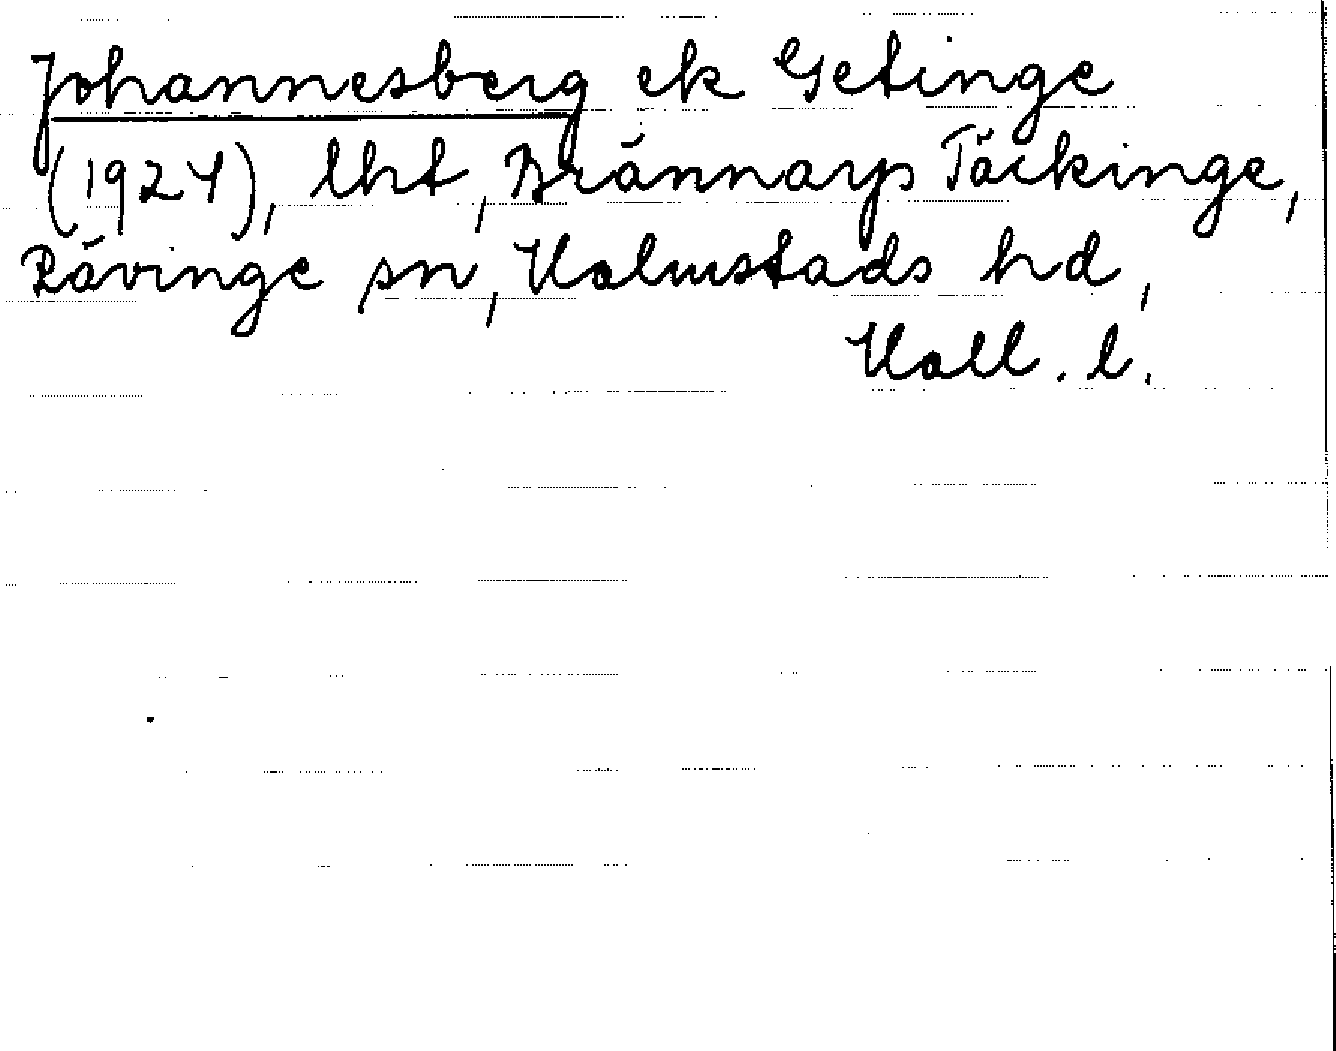 Johannesberg ek Getinge
(1924), lht, Brännarp Täckinge,
Rävinge sn, Halmstads hd,
Hall. l.